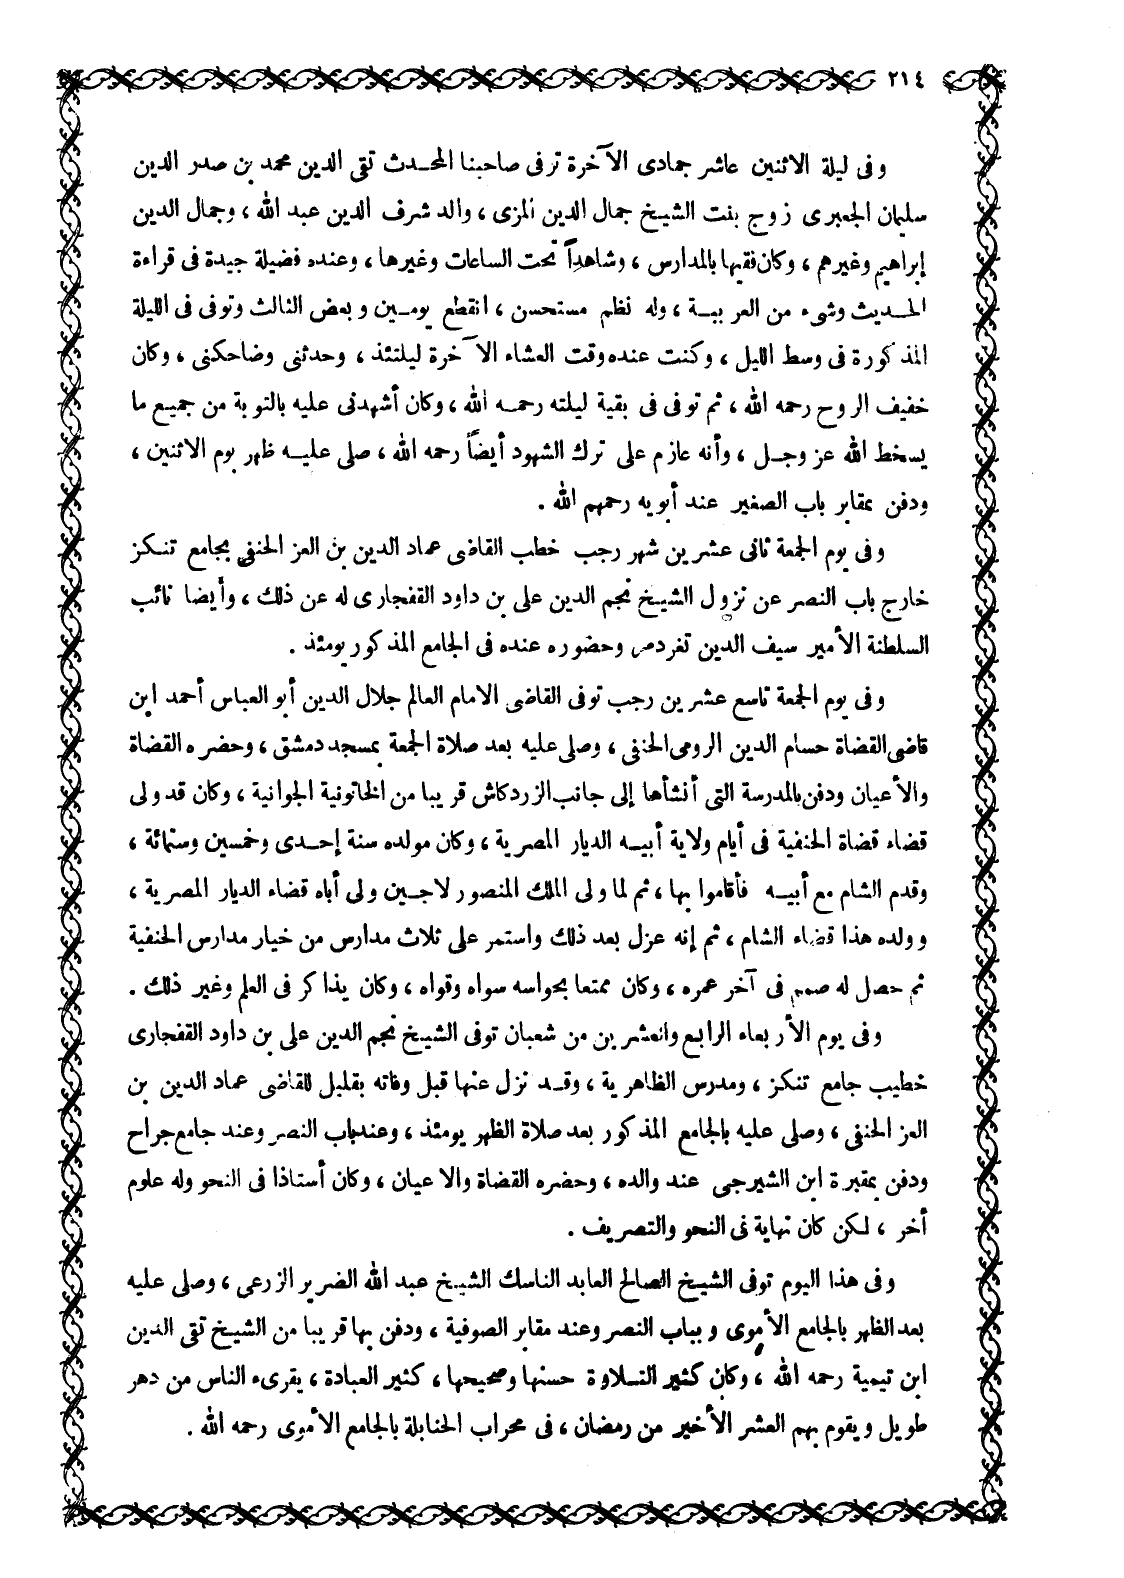 ٢١٤
وفى ليلة الاثنين عاشر جمادى الآخرة توفى صاحبنا المحدث تقى الدين محمد بن صدر الدين
سليمان الجعبرى زوج بنت الشيخ جمال الدين المزى ، والد شرف الدين عبد الله ، وجمال الدين
إبراهيم وغيرهم ، وكان فقيها بالمدارس ، وشاهداً تحت الساعات وغيرها ، وعنده فضيلة جيدة فى قراءة
الحديث وشىء من العربية ، وله نظم مستحسن ، انقطع يومين وبعض الثالث وتوفى فى الليلة
المذكورة فى وسط الليل ، وكنت عنده وقت العشاء الآخرة ليلتئذ ، وحدثنى وضاحكنى ، وكان
خفيف الروح رحمه الله ، ثم توفى فى بقية ليلته رحمه الله ، وكان أشهدنى عليه بالتوبة من جميع ما
يسخط الله عز وجل ، وأنه عازم على ترك الشهود أيضاً رحمه الله ، صلى عليه ظهر يوم الاثنين ،
ودفن بمقابر باب الصغير عند أبويه رحمهم الله .
وفى يوم الجمعة ثانى عشرين شهر رجب خطب القاضى عماد الدين بن العز الحنفى بجامع تنكز
خارج باب النصر عن نزول الشيخ نجم الدين على بن داود القفجارى له عن ذلك ، وأيضا نائب
السلطنة الأمير سيف الدين تغردمر وحضوره عنده فى الجامع المذكور يومئذ .
وفى يوم الجمعة تاسع عشرين رجب توفى القاضى الامام العالم جلال الدين أبو العباس أحمد ابن
قاضى القضاة حسام الدين الرومى الحنفى ، وصلى عليه بعد صلاة الجمعة بمسجد دمشق ، وحضره القضاة
والأعيان ودفن بالمدرسة التى أنشأها إلى جانب الزردكاش قريبا من الخاتونية الجوانية ، وكان قد ولى
قضاء قضاة الحنفية فى أيام ولاية أبيه الديار المصرية ، وكان مولده سنة إحدى وخمسين وستمائة ،
وقدم الشام مع أبيه فأقاموا بها ، ثم لما ولى الملك المنصور لاجين ولى أباه قضاء الديار المصرية ،
وولده هذا قضاء الشام ، ثم إنه عزل بعد ذلك واستمر على ثلاث مدارس من خيار مدارس الحنفية
ثم حصل له صمم فى آخر عمره ، وكان ممتعا بحواسه سواه وقواه ، وكان يذاكر فى العلم وغير ذلك .
وفى يوم الأربعاء الرابع والعشرين من شعبان توفى الشيخ نجم الدين على بن داود القفجارى
خطيب جامع تنكز ، ومدرس الظاهرية ، وقد نزل عنها قبل وفاته بقليل للقاضى عماد الدين بن
العز الحنفى ، وصلى عليه بالجامع المذكور بعد صلاة الظهر يومئذ ، وعند باب النصر وعند جامع جراح
ودفن بمقبرة ابن الشيرجى عند والده ، وحضره القضاة والاعيان ، وكان أستاذا فى النحو وله علوم
أخر ، لكن كان نهاية فى النحو والتصريف .
وفى هذا اليوم توفى الشيخ الصالح العابد الناسك الشيخ عبد الله الضرير الزرعى ، وصلى عليه
بعد الظهر بالجامع الأموى وبباب النصر وعند مقابر الصوفية ، ودفن بها قريبا من الشيخ تقى الدين
ابن تيمية رحمه الله ، وكان كثير التلاوة حسنها وصحيحها ، كثير العبادة ، يقرىء الناس من دهر
طويل ويقوم بهم العشر الأخير من رمضان ، فى محراب الحنابلة بالجامع الأموى رحمه الله .